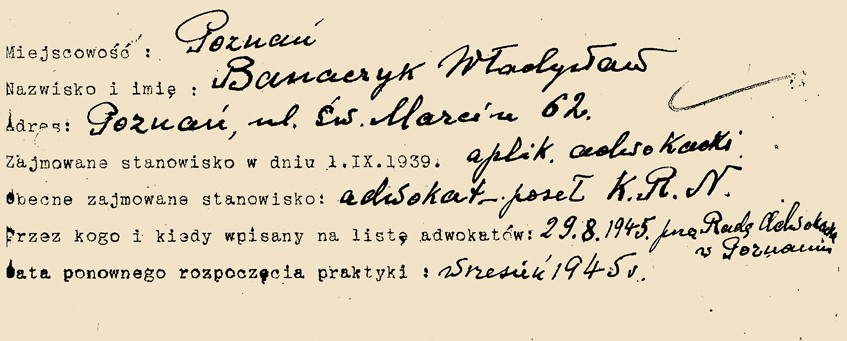 Miejscowość : Poznań
Nazwisko i imię : Banaczyk Władysław
Adres: Poznań, ul. Św. Marcin 62.
Zajmowane stanowisko w dniu 1.IX.1939. aplik. adwokacki
Obecne zajmowane stanowisko: adwokat – poseł K.R.N.
Przez kogo i kiedy wpisany na listę adwokatów: 29.8.1945. przez Radę Adwokacką
w Poznaniu
Data ponownego rozpoczęcia praktyki : wrzesień 1945 r.